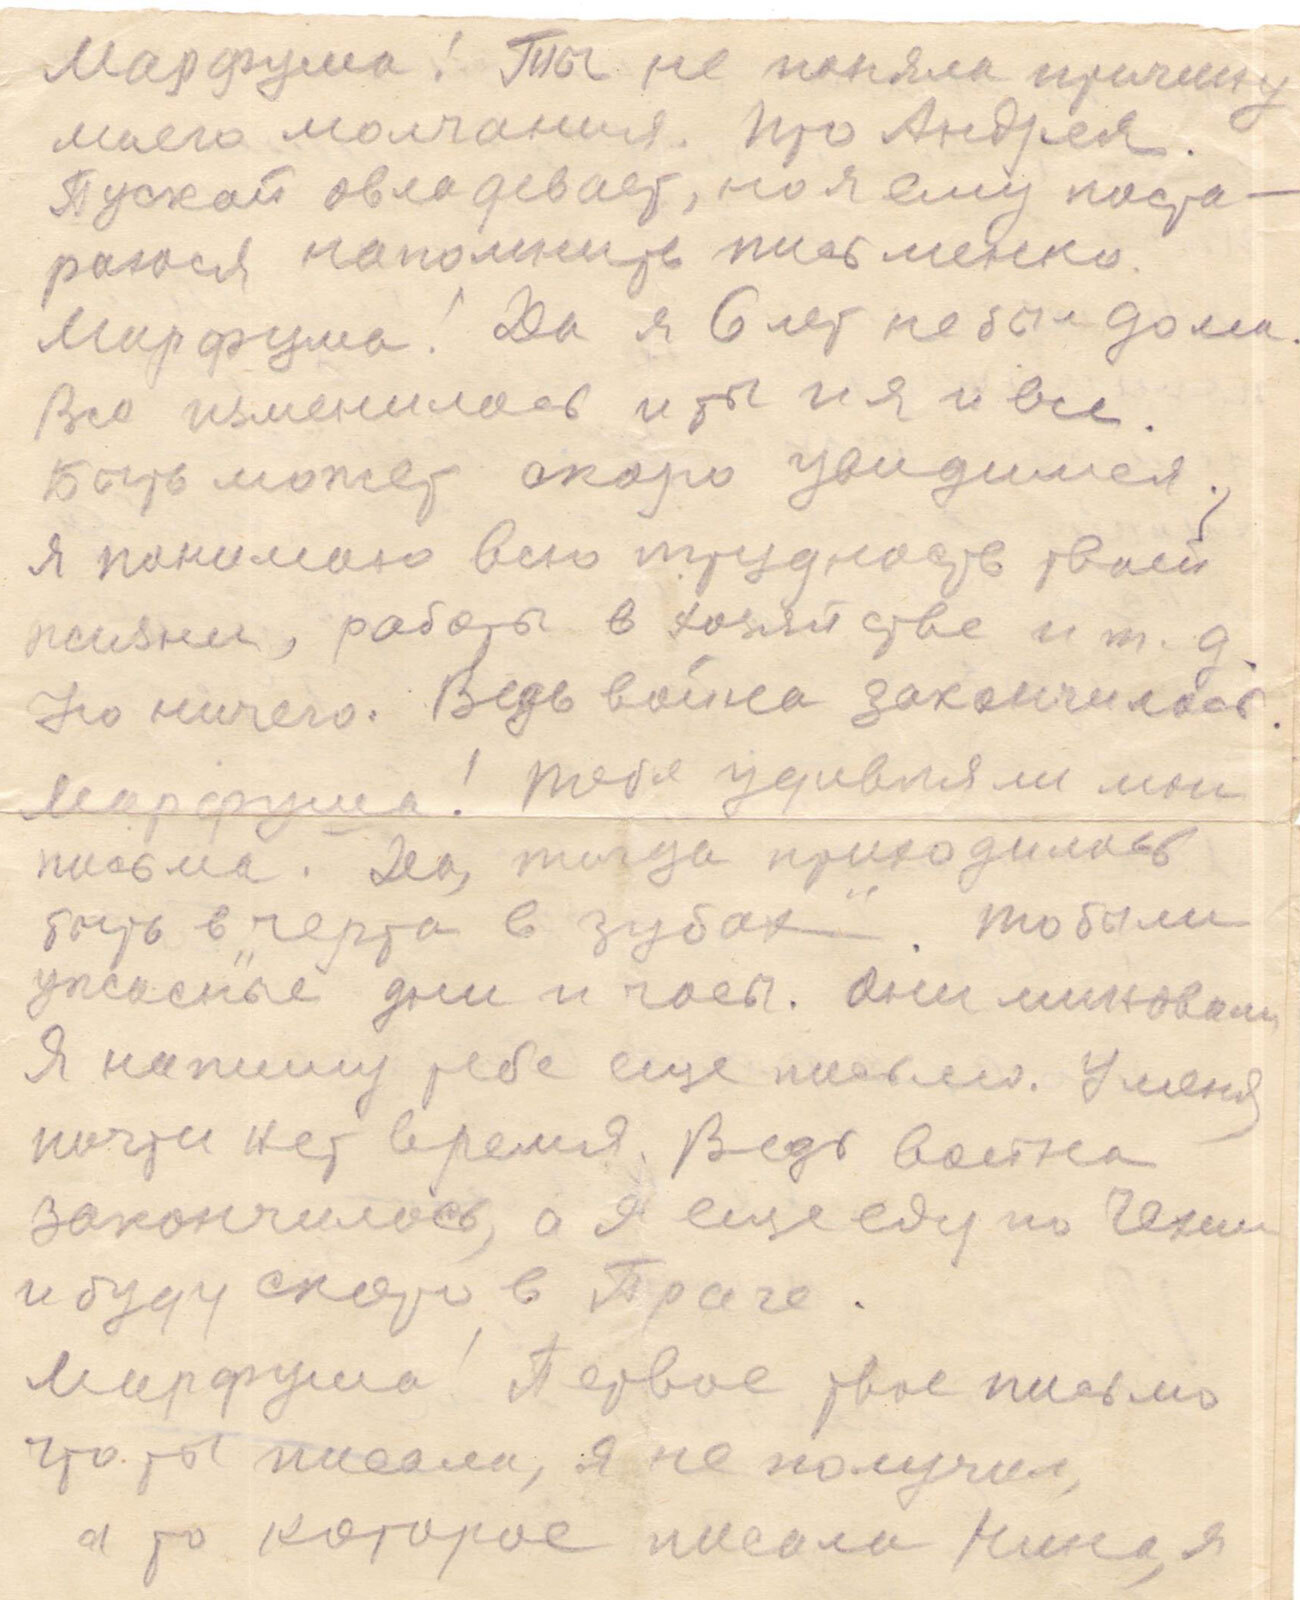 Марфуша! Ты не поняла причину
моего молчания. Про Андрея.
Пускай овладевает, но я ему поста-
раюся напомнить письменно.
Марфуша! Да я 6 лет не был дома.
Все изменилось и ты и я и все.
Быть может скоро увидимся.
Я понимаю всю трудность твоей
жизни, работы в хозяйстве и т. д.
Но ничего. Ведь война закончилась.
Марфуша! Тебя удивляли мои
письма. Да, тогда приходилось
быть в "черта в зубах". То были
ужасные дни и часы. Они миновали
Я напишу тебе еще письмо. У меня
почти нет время. Ведь война
закончилась, а я еще еду по Чехии
и буду скоро в Праге.
Марфуша! Первое твое письмо
что ты писала, я не получил,
а то которое писала Нина, я